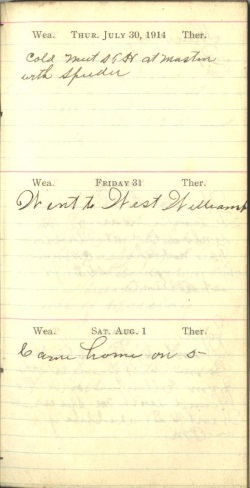 Wea. THUR. JULY 30, 1914 Ther.
Cold Met S & H at Maston
with Speeder
Wea. FRIDAY 31 Ther.
Went to West
Wea. SAT. AUG. 1 Ther.
Came home on 5